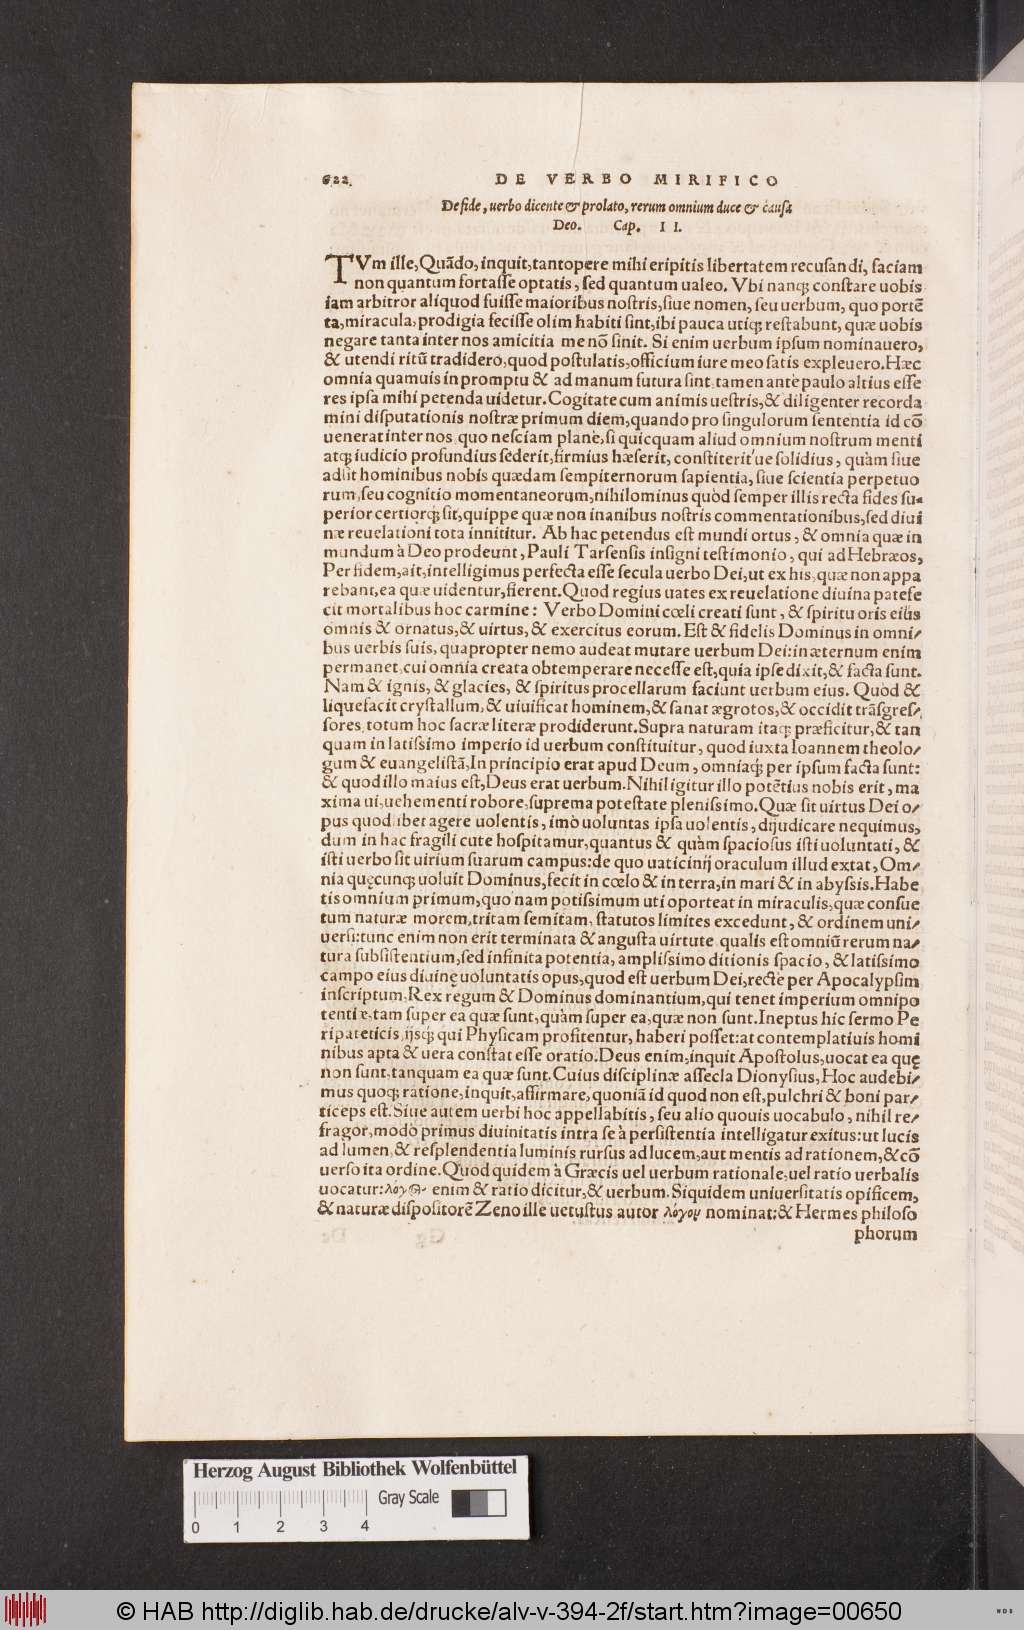 622. DE VERBO MIRIFICO
De fide, uerbo dicente & prolato, rerum omnium duce & causa
Deo. Cap. II.
TVm ille, Quādo, inquit, tantopere mihi eripitis libertatem recusandi, faciam
non quantum fortasse optatis, sed quantum ualeo. Vbi nanq; constare uobis
iam arbitror aliquod fuisse maioribus nostris, siue nomen, seu uerbum, quo portē
ta, miracula, prodigia fecisse olim habiti sint, ibi pauca utiq; restabunt, quæ uobis
negare tanta inter nos amicitia me nō sinit. Si enim uerbum ipsum nominauero,
& utendi ritū tradidero, quod postulatis, officium iure meo satis expleuero. Hæc
omnia quamuis in promptu & ad manum futura sint, tamen antè paulo altius esse
res ipsa mihi petenda uidetur. Cogitate cum animis uestris, & diligenter recorda
mini disputationis nostræ primum diem, quando pro singulorum sententia id cō
uenerat inter nos, quo nesciam planè, si quicquam aliud omnium nostrum menti
atq; iudicio profundius sederit, firmius hæserit, constiterit'ue solidius, quàm siue
adsit hominibus nobis quædam sempiternorum sapientia, siue scientia perpetuo
rum, seu cognitio momentaneorum, nihilominus quòd semper illis recta fides su-
perior certiorq; sit, quippe quæ non inanibus nostris commentationibus, sed diui
næ reuelationi tota innititur. Ab hac petendus est mundi ortus, & omnia quæ in
mundum à Deo prodeunt, Pauli Tarsensis insigni testimonio, qui ad Hebræos,
Per fidem, ait, intelligimus perfecta esse secula uerbo Dei, ut ex his, quæ non appa
rebant, ea quæ uidentur, fierent. Quod regius uates ex reuelatione diuina patefe
cit mortalibus hoc carmine: Verbo Domini cœli creati sunt, & spiritu oris eius
omnis & ornatus, & uirtus, & exercitus eorum. Est & fidelis Dominus in omni-
bus uerbis suis, quapropter nemo audeat mutare uerbum Dei: in æternum enim
permanet, cui omnia creata obtemperare necesse est, quia ipse dixit, & facta sunt.
Nam & ignis, & glacies, & spiritus procellarum faciunt uerbum eius. Quòd &
liquefacit crystallum, & uiuificat hominem, & sanat ægrotos, & occidit trāsgres-
sores, totum hoc sacræ literæ prodiderunt. Supra naturam itaq; præficitur, & tan
quam in latissimo imperio id uerbum constituitur, quod iuxta Ioannem theolo-
gum & euangelistā, In principio erat apud Deum, omniaq; per ipsum facta sunt:
& quod illo maius est, Deus erat uerbum. Nihil igitur illo potētius nobis erit, ma
xima ui, uehementi robore, suprema potestate plenissimo. Quæ sit uirtus Dei o-
pus quodlibet agere uolentis, imò uoluntas ipsa uolentis, dijudicare nequimus,
dum in hac fragili cute hospitamur, quantus & quàm spaciosus isti uoluntati, &
isti uerbo sit uirium suarum campus: de quo uaticinij oraculum illud extat, Om-
nia quęcunq; uoluit Dominus, fecit in cœlo & in terra, in mari & in abyssis. Habe
tis omnium primum, quo nam potissimum uti oporteat in miraculis, quæ consue
tum naturæ morem, tritam semitam, statutos limites excedunt, & ordinem uni-
uersi: tunc enim non erit terminata & angusta uirtute, qualis est omniū rerum na-
tura subsistentium, sed infinita potentia, amplissimo ditionis spacio, & latissimo
campo eius diuinę uoluntatis opus, quod est uerbum Dei, rectè per Apocalypsim
inscriptum, Rex regum & Dominus dominantium, qui tenet imperium omnipo
tentiæ, tam super ea quæ sunt, quàm super ea, quæ non sunt. Ineptus hic sermo Pe
ripateticis, ijsq; qui Physicam profitentur, haberi posset: at contemplatiuis homi
nibus apta & uera constat esse oratio. Deus enim, inquit Apostolus, uocat ea quę
non sunt, tanquam ea quæ sunt. Cuius disciplinæ assecla Dionysius, Hoc audebi-
mus quoq; ratione, inquit, affirmare, quoniā id quod non est, pulchri & boni par-
ticeps est. Siue autem uerbi hoc appellabitis, seu alio quouis uocabulo, nihil re-
fragor, modò primus diuinitatis intra se à persistentia intelligatur exitus: ut lucis
ad lumen, & resplendentia luminis rursus ad lucem, aut mentis ad rationem, & cō
uerso ita ordine. Quod quidem à Græcis uel uerbum rationale, uel ratio uerbalis
uocatur: λόγος enim & ratio dicitur, & uerbum. Siquidem uniuersitatis opificem,
& naturæ dispositorē Zeno ille uetustus autor λόγον nominat: & Hermes philoso
phorum
Herzog August Bibliothek Wolfenbüttel
Gray Scale
0 1 2 3 4
© HAB http://diglib.hab.de/drucke/alv-v-394-2f/start.htm?image=00650